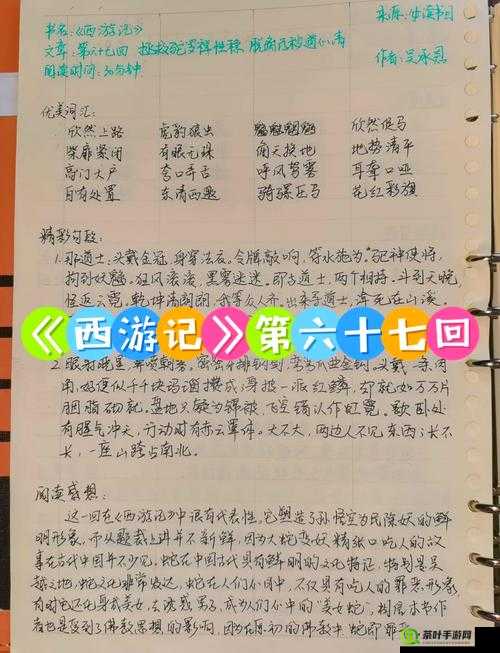 书名:《西游记》 来源:生读书目
文章:第六十七回 拯救驼罗禅性稳 脱离秽污道心清
阅读时间:30分钟 作者:吴承恩
优美词汇:
欣然上路 虎豹狼虫 魑魅魍魉 欣然促马
柴扉紧闭 有眼无珠 瞒天换地 地势清平
高门大户 夸口弄舌 呼风驾雾 耳聋口哑
自有处置 东清西趣 骑骡压马 花红彩旗
精彩句段:
1.那道士,头戴金冠,身穿法衣,令牌敲响,符水施为,驱神使将,
拘到妖魑。狂风滚滚,黑雾迷迷。即与道士,两个相持。斗到天晚,
怪返云霓。乾坤清朗朗,我等众人齐。出来寻道士,渰死在山溪。
《西游记》第六十七回
2.眼射晓星,鼻喷朝雾。密密牙排钢剑,弯弯爪曲金钩。头戴一条肉
角,好便似千千块玛瑙攒成;身披一派红鳞,却就如万万片
胭脂砌就。盘地只疑为锦被,飞空错认作虹霓。歇卧处
有腥气冲天,行动时有赤云罩体。大不大,两边人不见东西;长不
长,一座山跨占南北。
阅读感想:
这一回在《西游记》中很有代表性,它塑造了孙悟空为民除妖的鲜
明形象,而从题材上讲并不新鲜,因为大蛇变妖精张口吃人的故
事在古代中国并不少见。蛇在中国古代具有鲜明的文化特征,特别是吴
越之地,蛇文化非常发达,蛇在人们心目中,不仅具有吃人的罪恶形象,
有时它还化身成美女,去诱惑男子,成为人们心中的"美女蛇",
者也是受到了佛教思想的影响,因为在原初的佛教中,蛇即罪
茶叶手游网